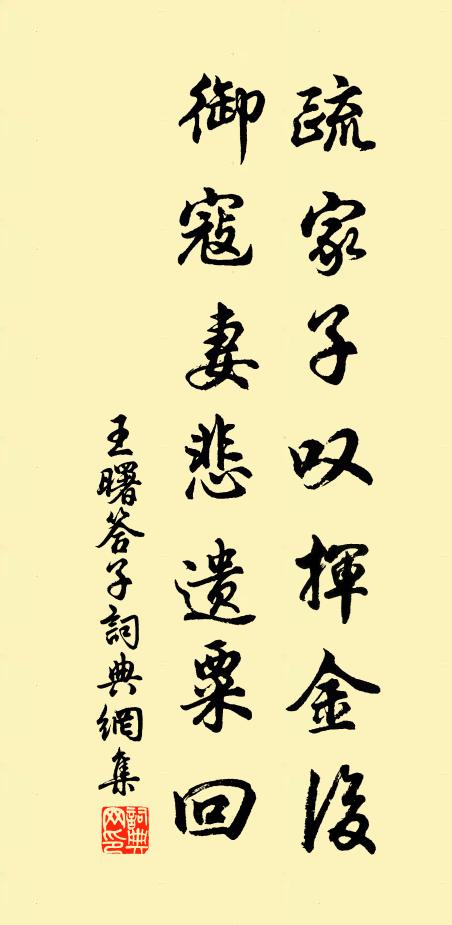 疏家子叹揮金後
御寇妻悲遺粟回
王曙答子詞典網集
詞典网印